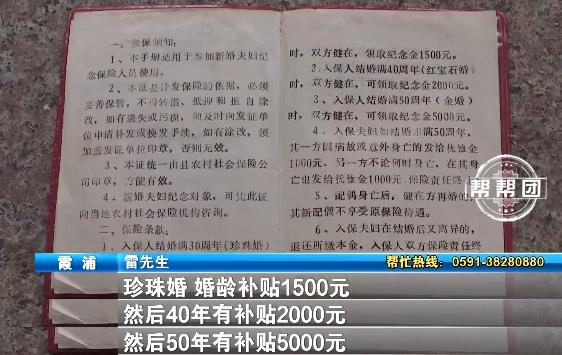 一、参保须知:
1、本手册适用于参加新婚夫妇纪
念保险人员使用。
2、本证是计发保险的依据,必须
妥善保管,不得转借、抵押和擅自涂
改,如有遗失或污损,须及时向发证单
位申请补发或换发手续,如有涂改,须
加盖发证单位印章,否则无效。
3、本证统一由县农村社会保险公
司印章,方能有效。
4、新婚夫妇纪念对象,可凭此证
向当地农村社会保险机构咨询。
二、保险条款:
1、入保人结婚满30周年(珍珠婚)
时,双方健在,领取纪念金1500元。
2、入保人结婚满40周年(红宝石婚)
时,双方健在,可领取纪念金2000元。
3、入保人结婚满50周年(金婚)
时,双方健在,可领取纪念金5000元。
4、入保夫妇如结婚未满50周年,
其一方因病故或意外身亡的发给抚恤金
1000元,另一方不论何时身亡,在其身
亡也发给抚恤金1000元,保险责任终止
5、配偶身亡后,健在方再婚的,
其新配偶不享受原保险待遇。
6、入保夫妇在结婚后又离异的,
退还所缴本金,入保人双方保险责任终
帮帮团
霞浦 雷先生 帮忙热线:0591-38280880
珍珠婚 婚龄补贴1500元
然后40年有补贴2000元
然后50年有补贴5000元